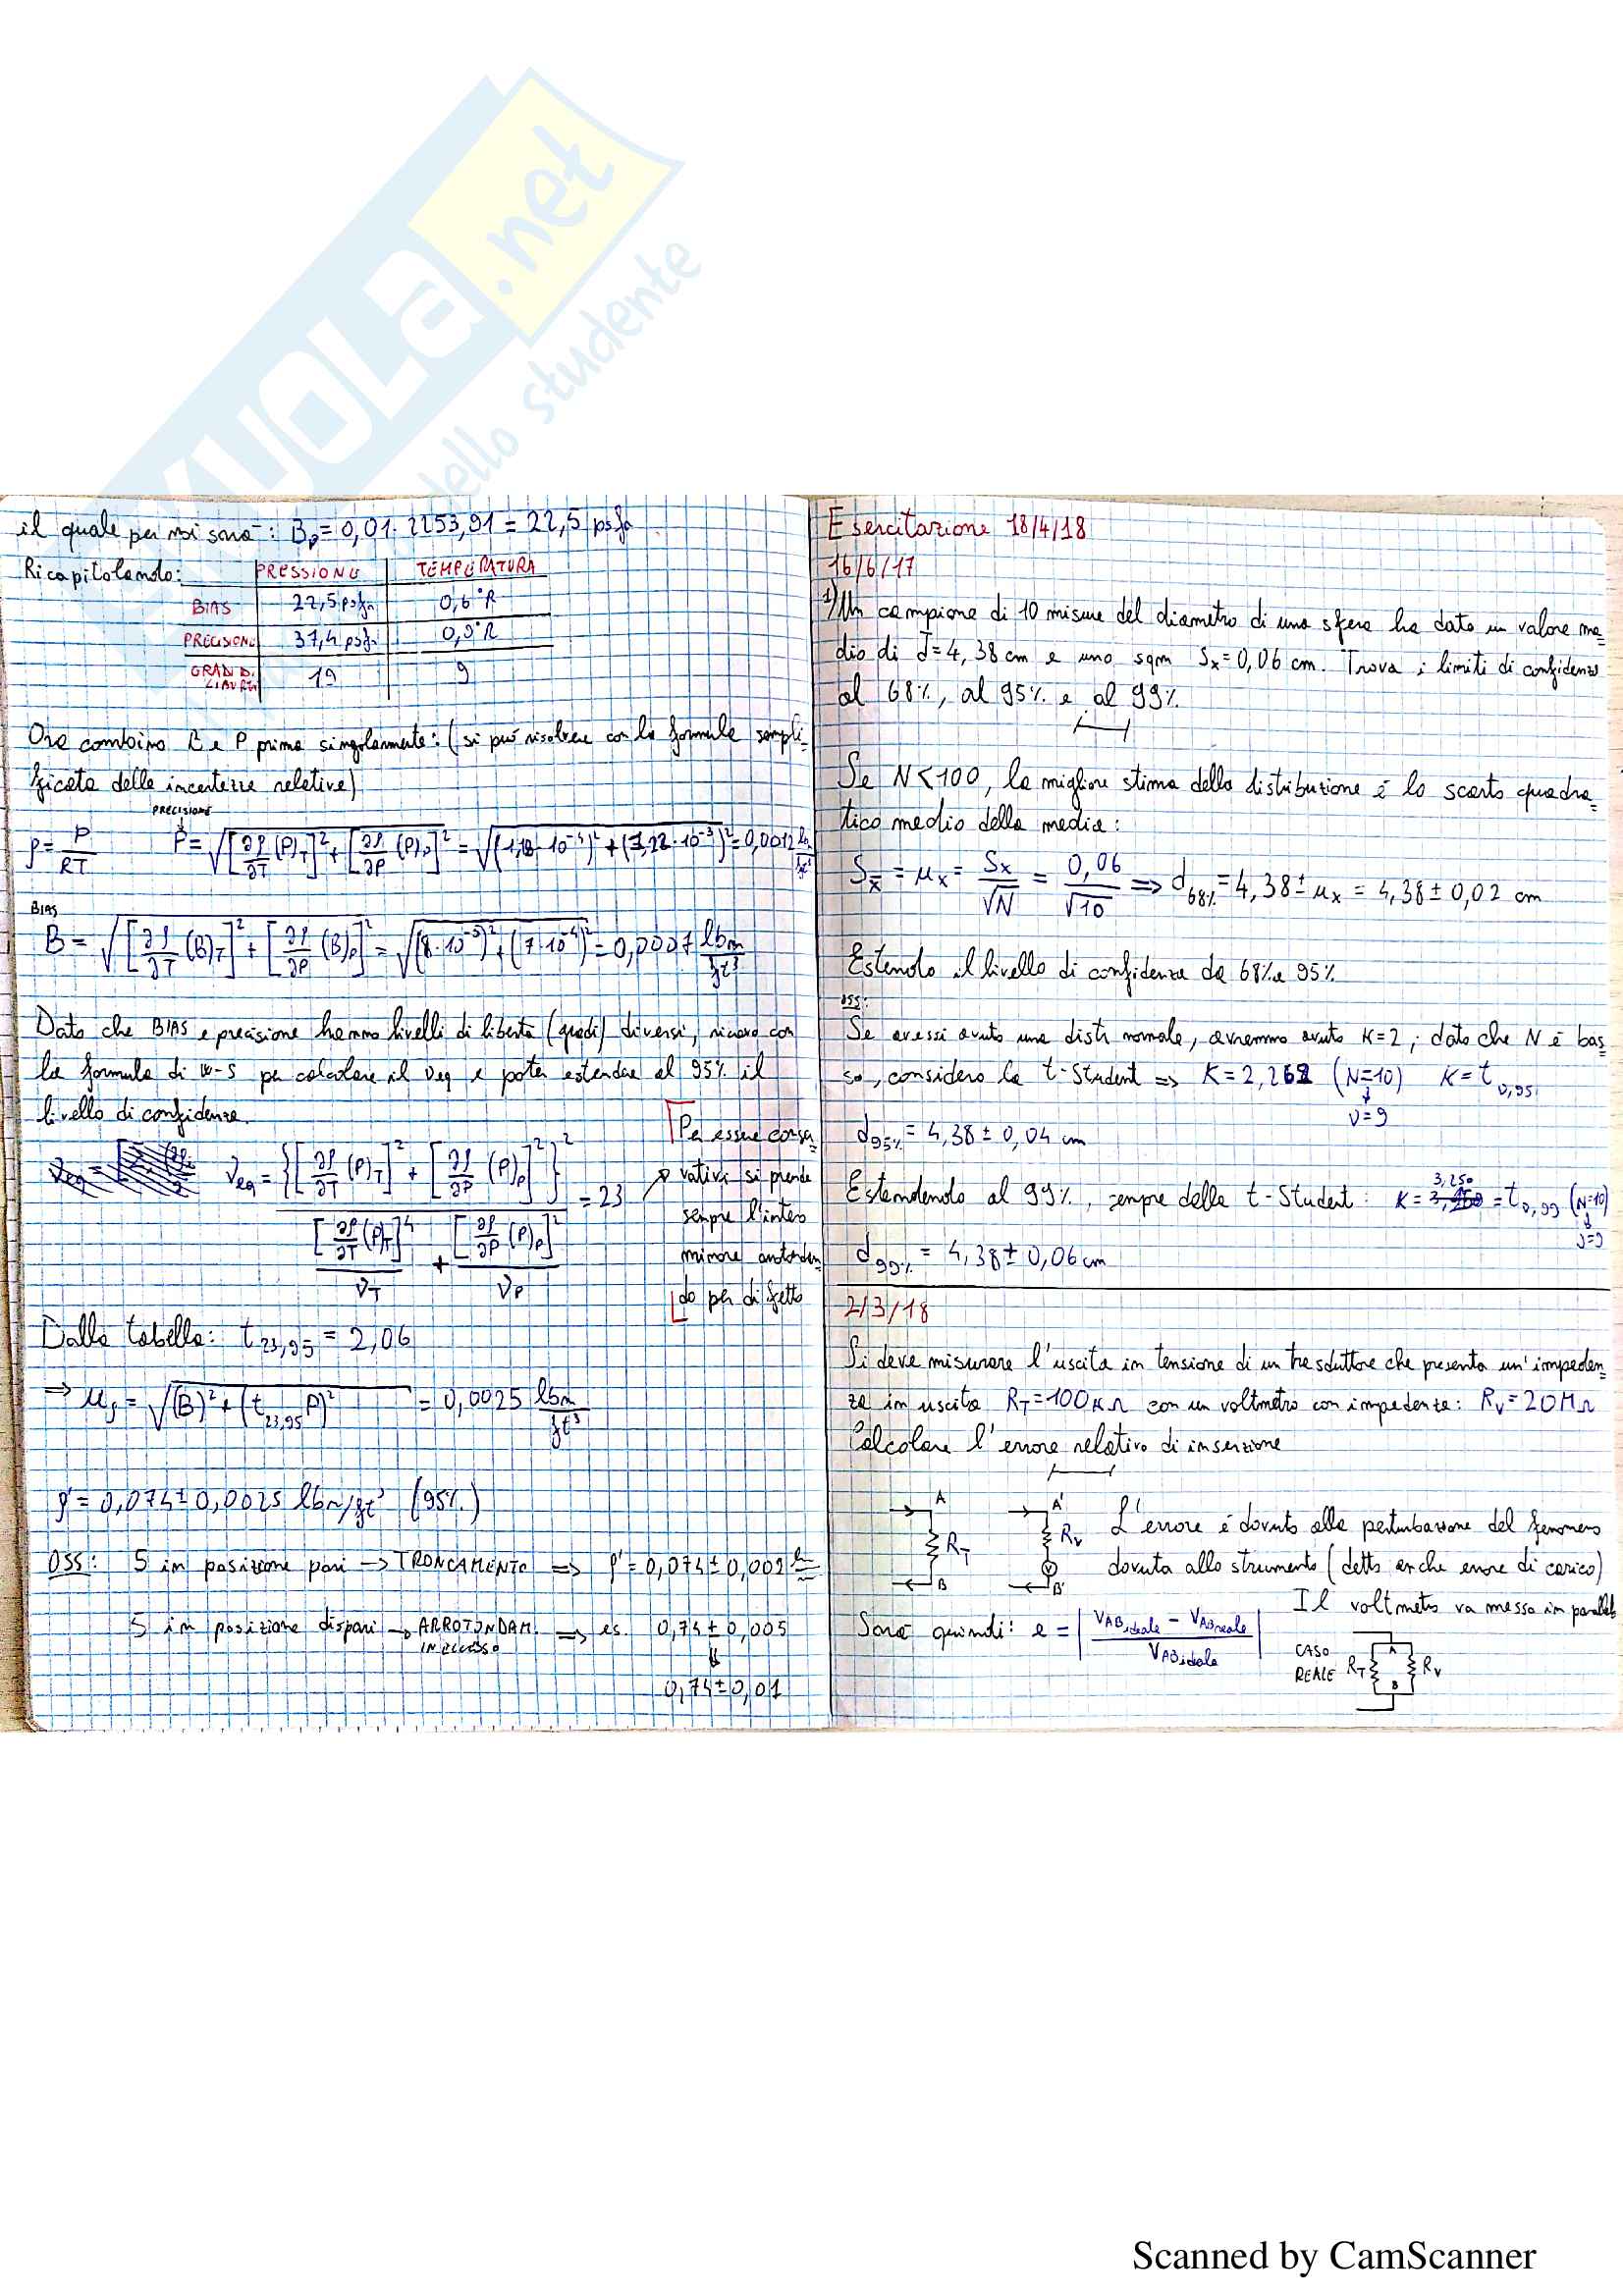 KUOLa.net
dello studente
il quale per noi sarà: Bp = 0,01 · 2253,91 = 22,5 psfa
Ricapitolando: PRESSIONE TEMPERATURA
BIAS 22,5 psfa 0,6°R
PRECISIONE 37,4 psfa 0,9°R
GRADI D. LIBERTÀ 19 9
Ora combino B e P prima singolarmente: (si può risolvere con la formula sempli=
ficata delle incertezze relative)
PRECISIONE
ρ = P/RT P = √([∂ρ/∂T (P)_T]² + [∂ρ/∂P (P)_P]²) = 0,0012
BIAS
B = √([∂ρ/∂T (B)_T]² + [∂ρ/∂P (B)_P]²) = √((8·10⁻⁵)² + (7·10⁻⁴)²) = 0,0007 lbm/ft³
Dato che BIAS e precisione hanno livelli di libertà (gradi) diversi, ricavo con
la formula di W-S per calcolare il νeq e poter estendere al 95% il
livello di confidenza.
νeq = {[∂ρ/∂T (P)_T]² + [∂ρ/∂P (P)_P]²}² / ([∂ρ/∂T (P)_T]⁴/ν_T + [∂ρ/∂P (P)_P]²/ν_P) = 23
Per essere conser=
vativi si prende
sempre l'intero
minore arrotondan=
do per difetto
Dalla tabella: t 23,95 = 2,06
⇒ uρ = √((B)² + (t 23,95 P)²) = 0,0025 lbm/ft³
ρ' = 0,074 ± 0,0025 lbm/ft³ (95%)
OSS: 5 in posizione pari → TRONCAMENTO ⇒ ρ' = 0,074 ± 0,002
5 in posizione dispari → ARROTONDAM. IN ECCESSO ⇒ es. 0,74 ± 0,005
⇓
0,74 ± 0,01
Esercitazione 18/4/18
16/6/17
1) Un campione di 10 misure del diametro di una sfera ha dato un valore me=
dio di d̄ = 4,38 cm e uno sqm Sx = 0,06 cm. Trova i limiti di confidenza
al 68%, al 95% e al 99%
Se N<100, la migliore stima della distribuzione è lo scarto quadra=
tico medio della media:
Sx̄ = μx = Sx/√N = 0,06/√10 ⇒ d68% = 4,38 ± μx = 4,38 ± 0,02 cm
Estendo il livello di confidenza da 68% a 95%
OSS:
Se avessi avuto una distr normale, avremmo avuto K=2; dato che N è bas=
so, considero la t-Student ⇒ K = 2,262 (N=10) K = t 0,95
ν=9
d95% = 4,38 ± 0,04 cm
Estendendo al 99%, sempre dalla t-Student: K = 3,250 = t 0,99 (N=10)
ν=9
d99% = 4,38 ± 0,06 cm
2/3/18
Si deve misurare l'uscita in tensione di un trasduttore che presenta un'impeden=
za in uscita RT = 100 KΩ con un voltmetro con impedenza: RV = 20 MΩ
Calcolare l'errore relativo di inserzione
A RT B A' RV V B' L'errore è dovuto alla perturbazione del fenomeno
dovuta allo strumento (detto anche errore di carico)
Il voltmetro va messo in parallelo
Sarà quindi: e = |(VAB ideale − VAB reale) / VAB ideale|
CASO
REALE RT A B RV
Scanned by CamScanner